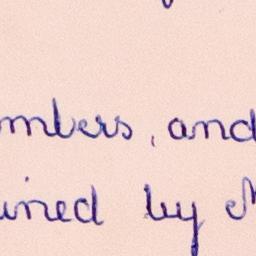 mbers, and
ined by